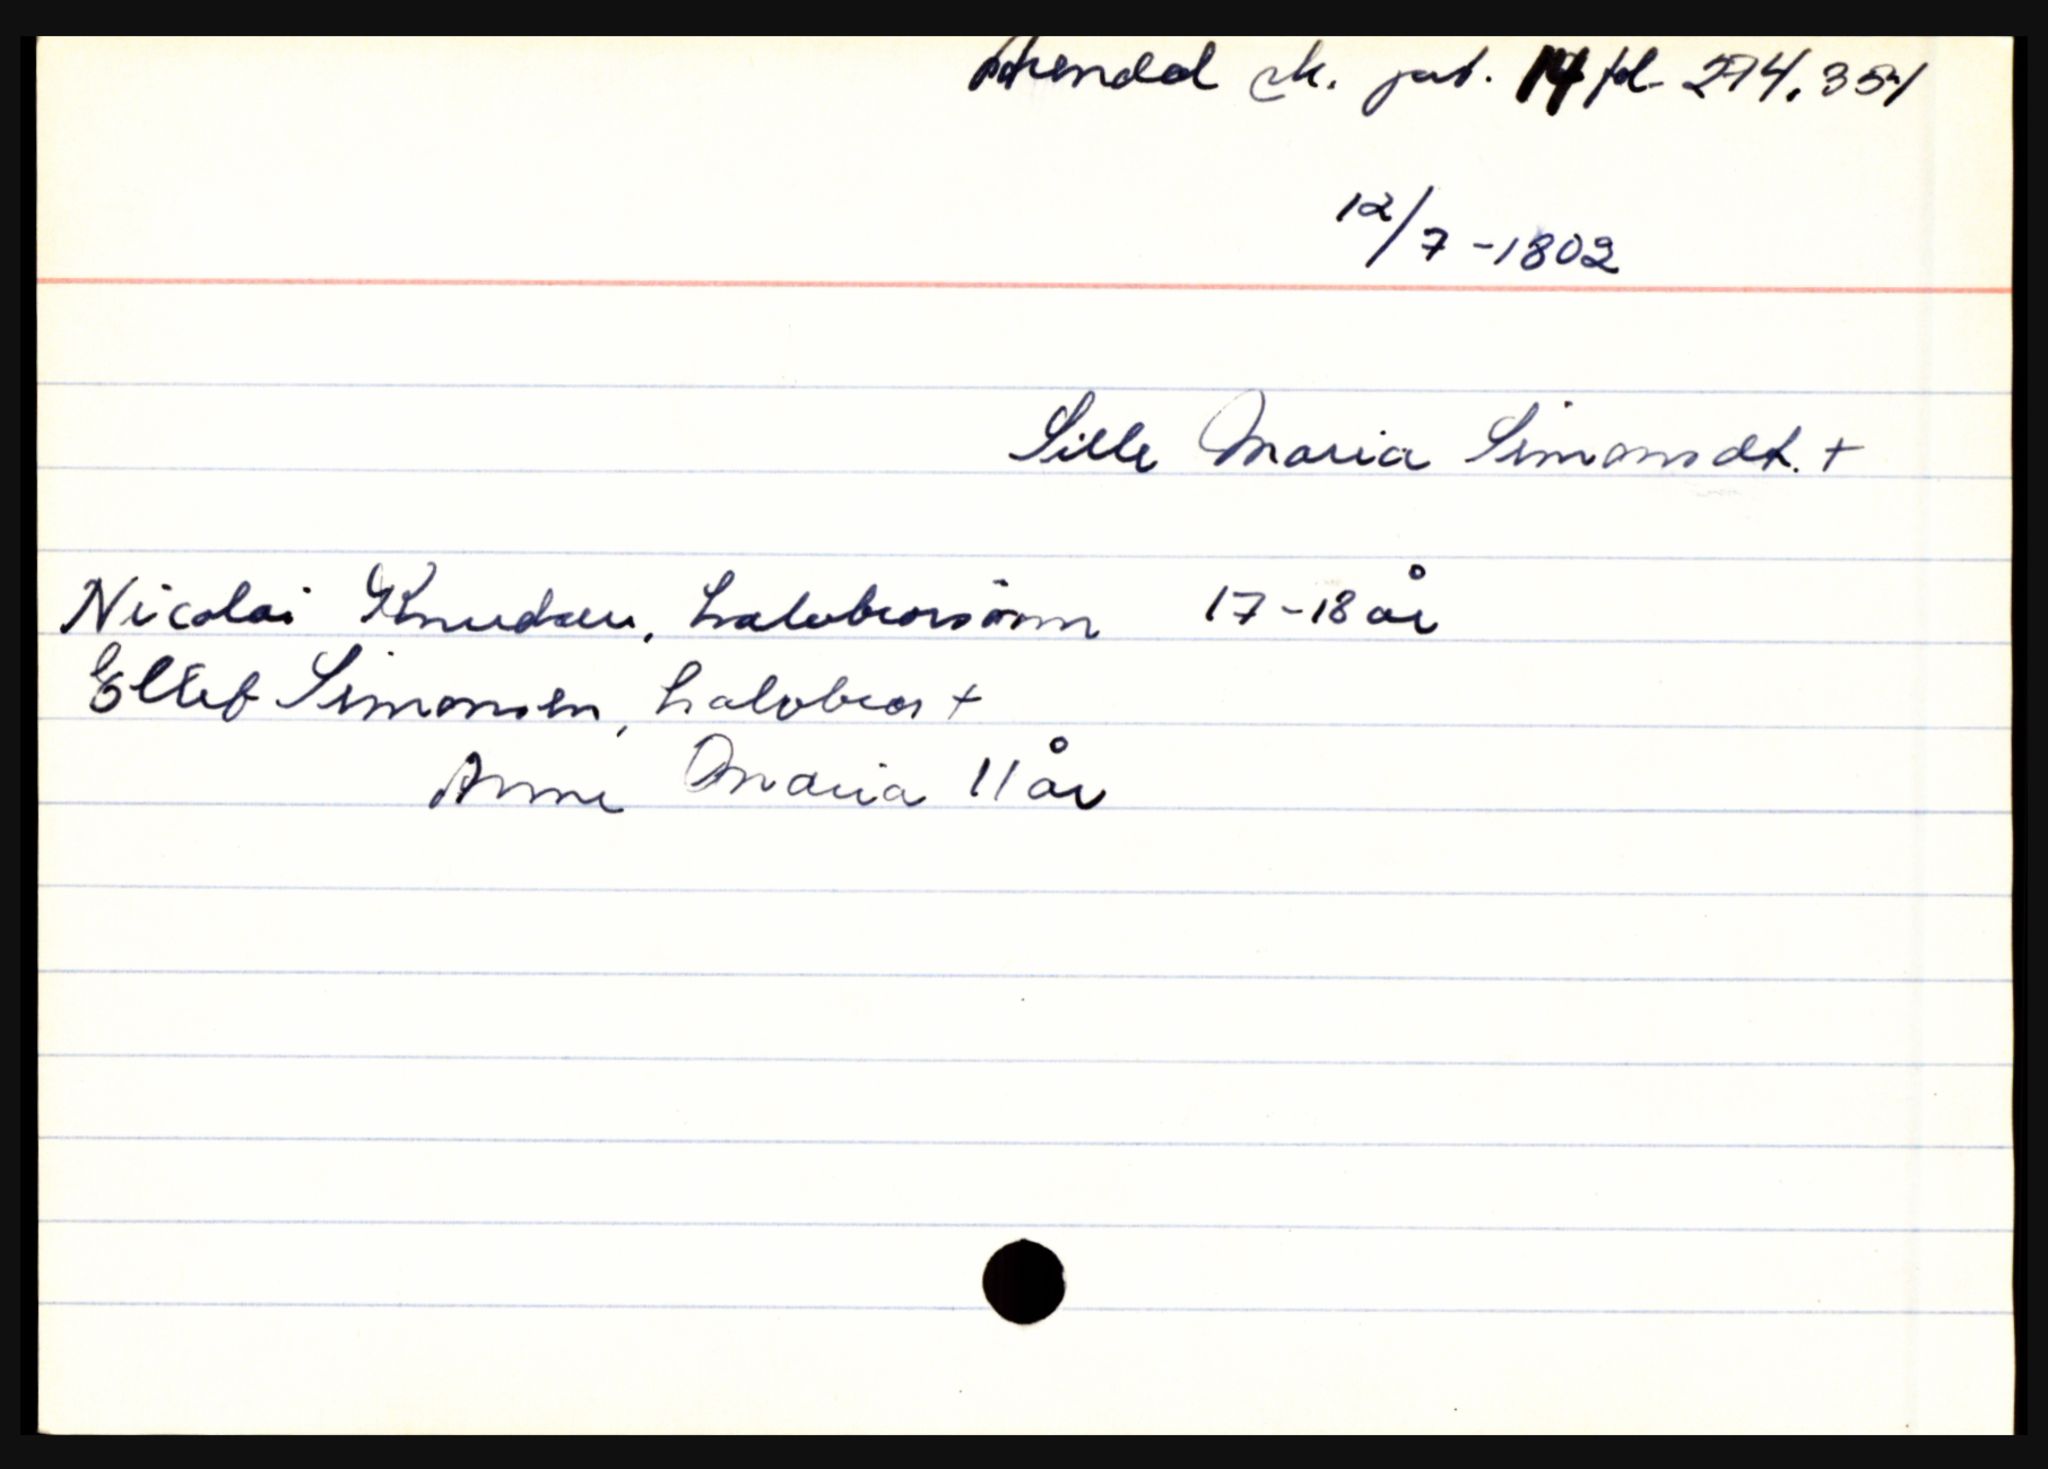 Arendal sk. prot. 14 fol. 274, 351
12/7 - 1802
Sille Maria Simonsdt. +
Nicolai Knudsen, halvbrorsønn 17-18 år
Ellef Simonsen, halvbror +
Anne Maria 11 år